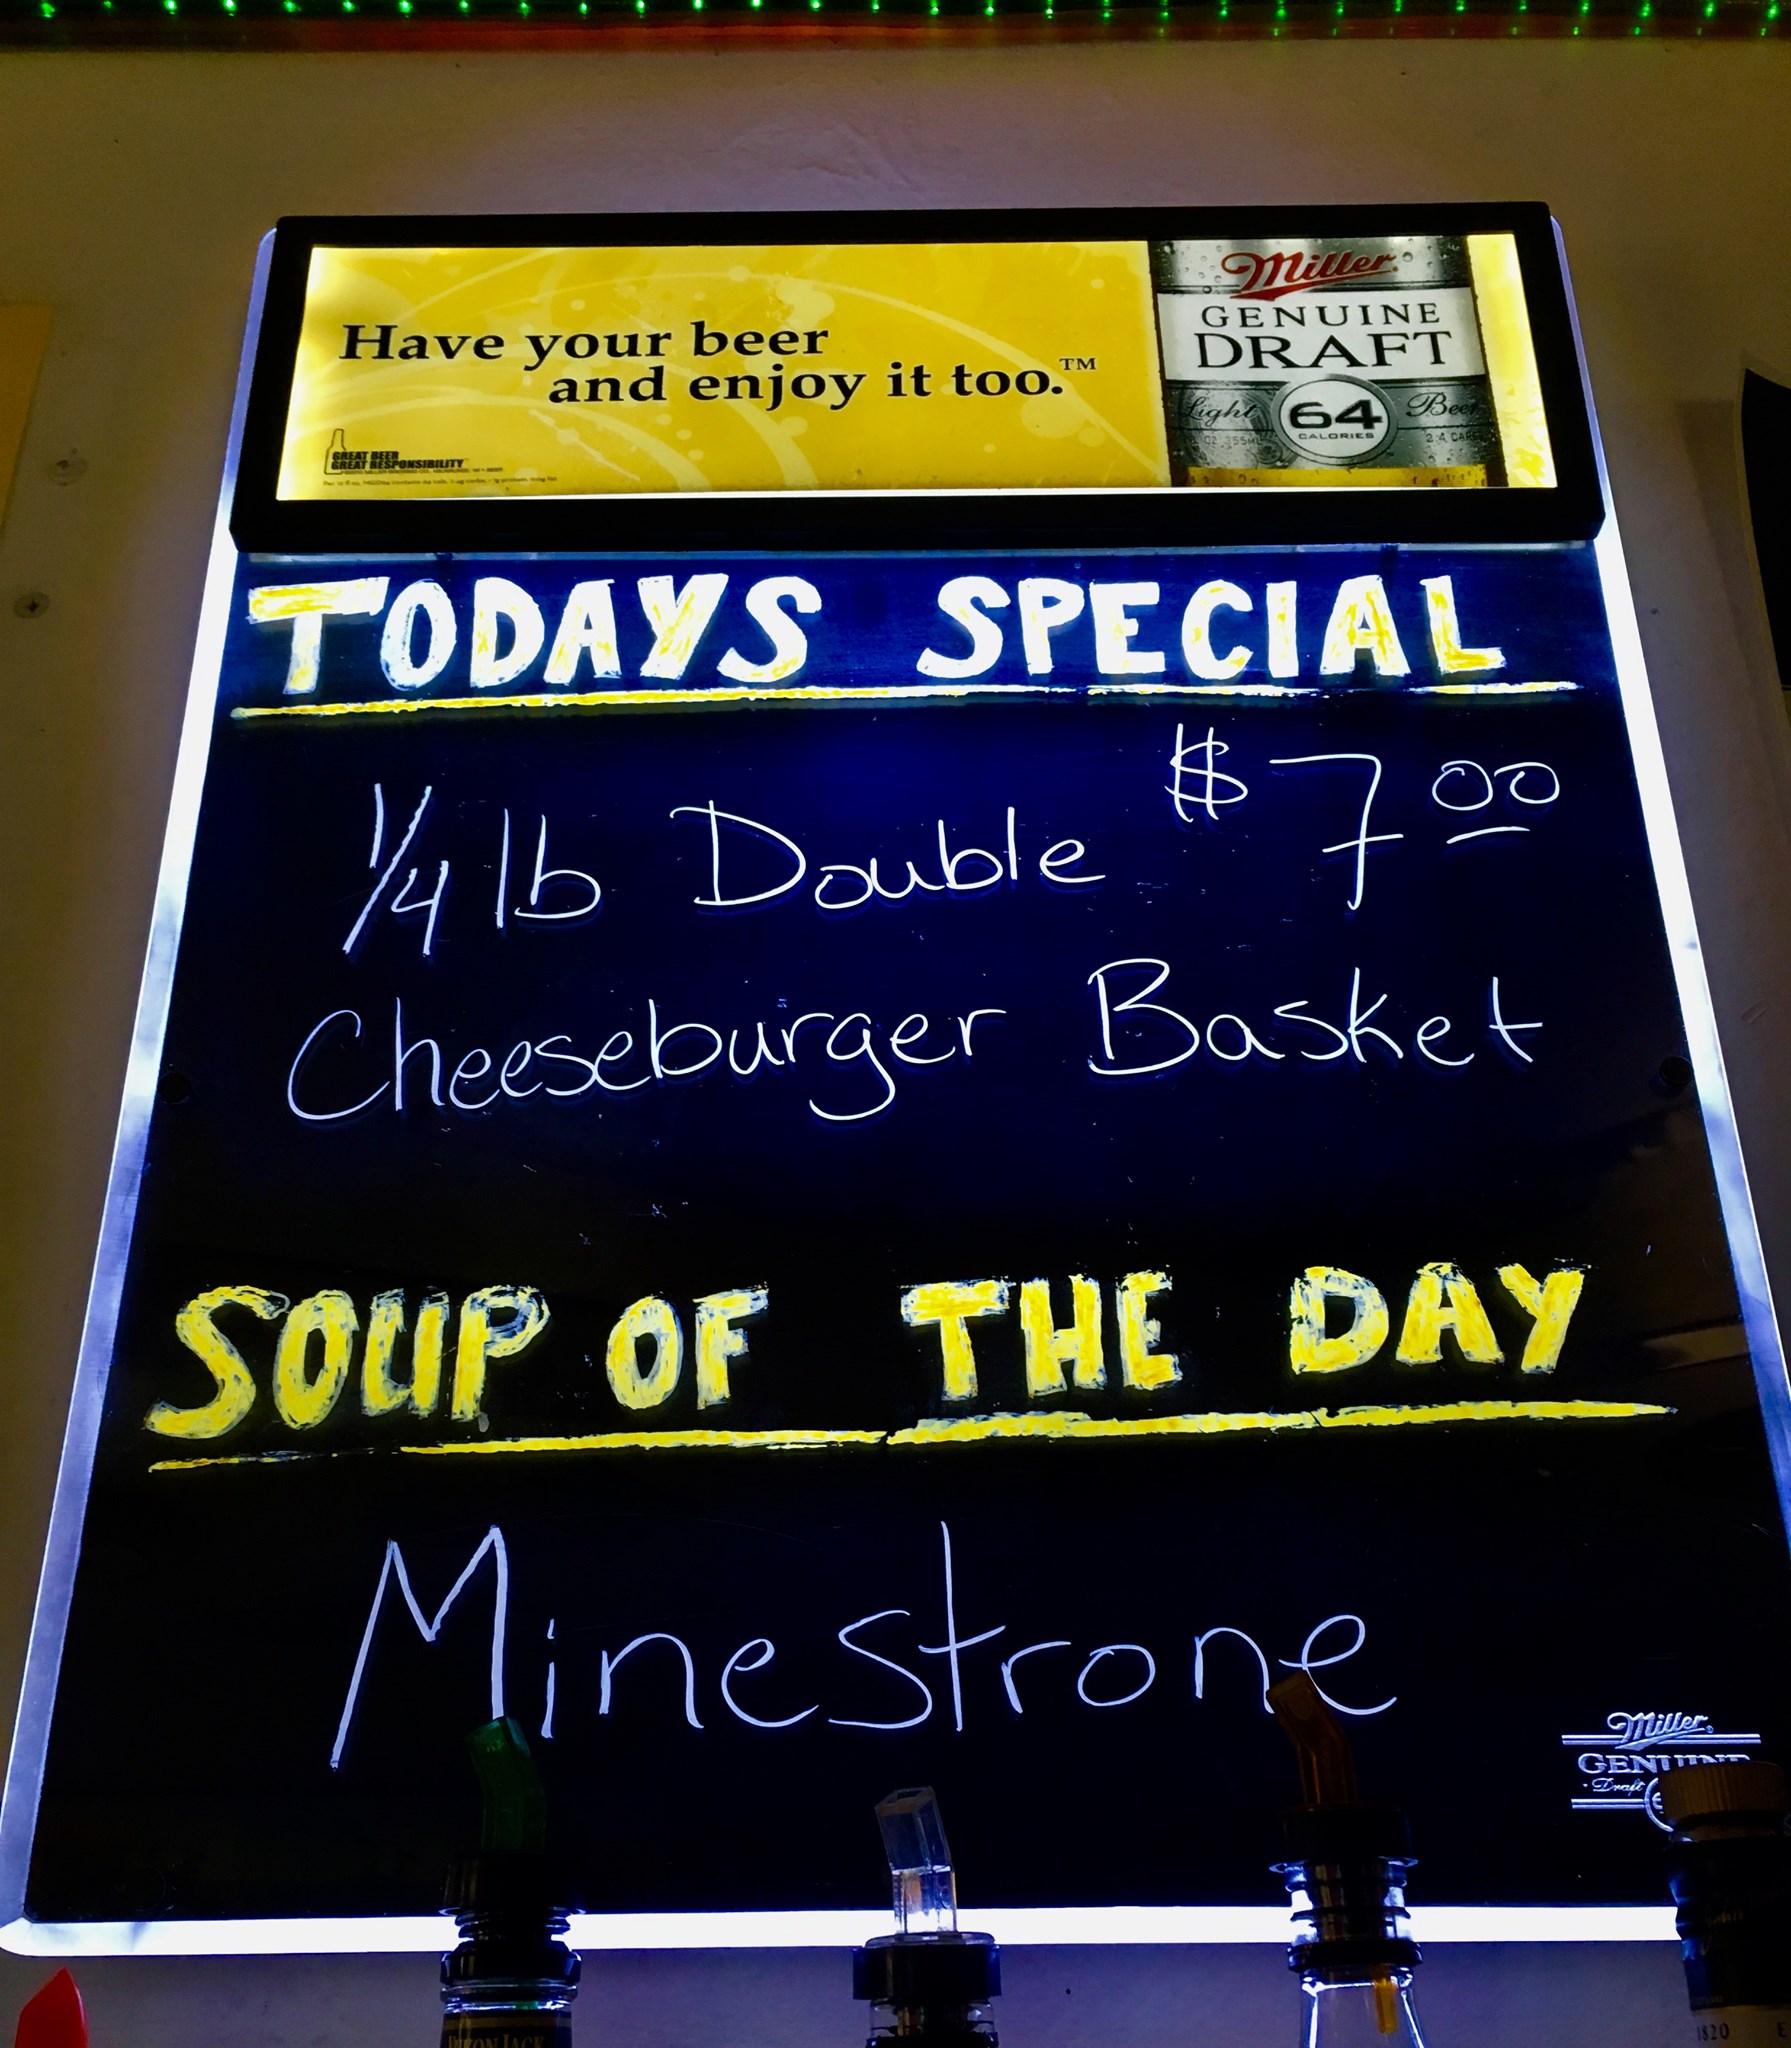 Have your beer
and enjoy it too.™
Miller
GENUINE
DRAFT
Light 64 Beer
CALORIES
GREAT BEER
GREAT RESPONSIBILITY™
TODAYS SPECIAL
1/4 lb Double $7.00
Cheeseburger Basket
SOUP OF THE DAY
Minestrone
Miller
GENUINE
Draft
1820